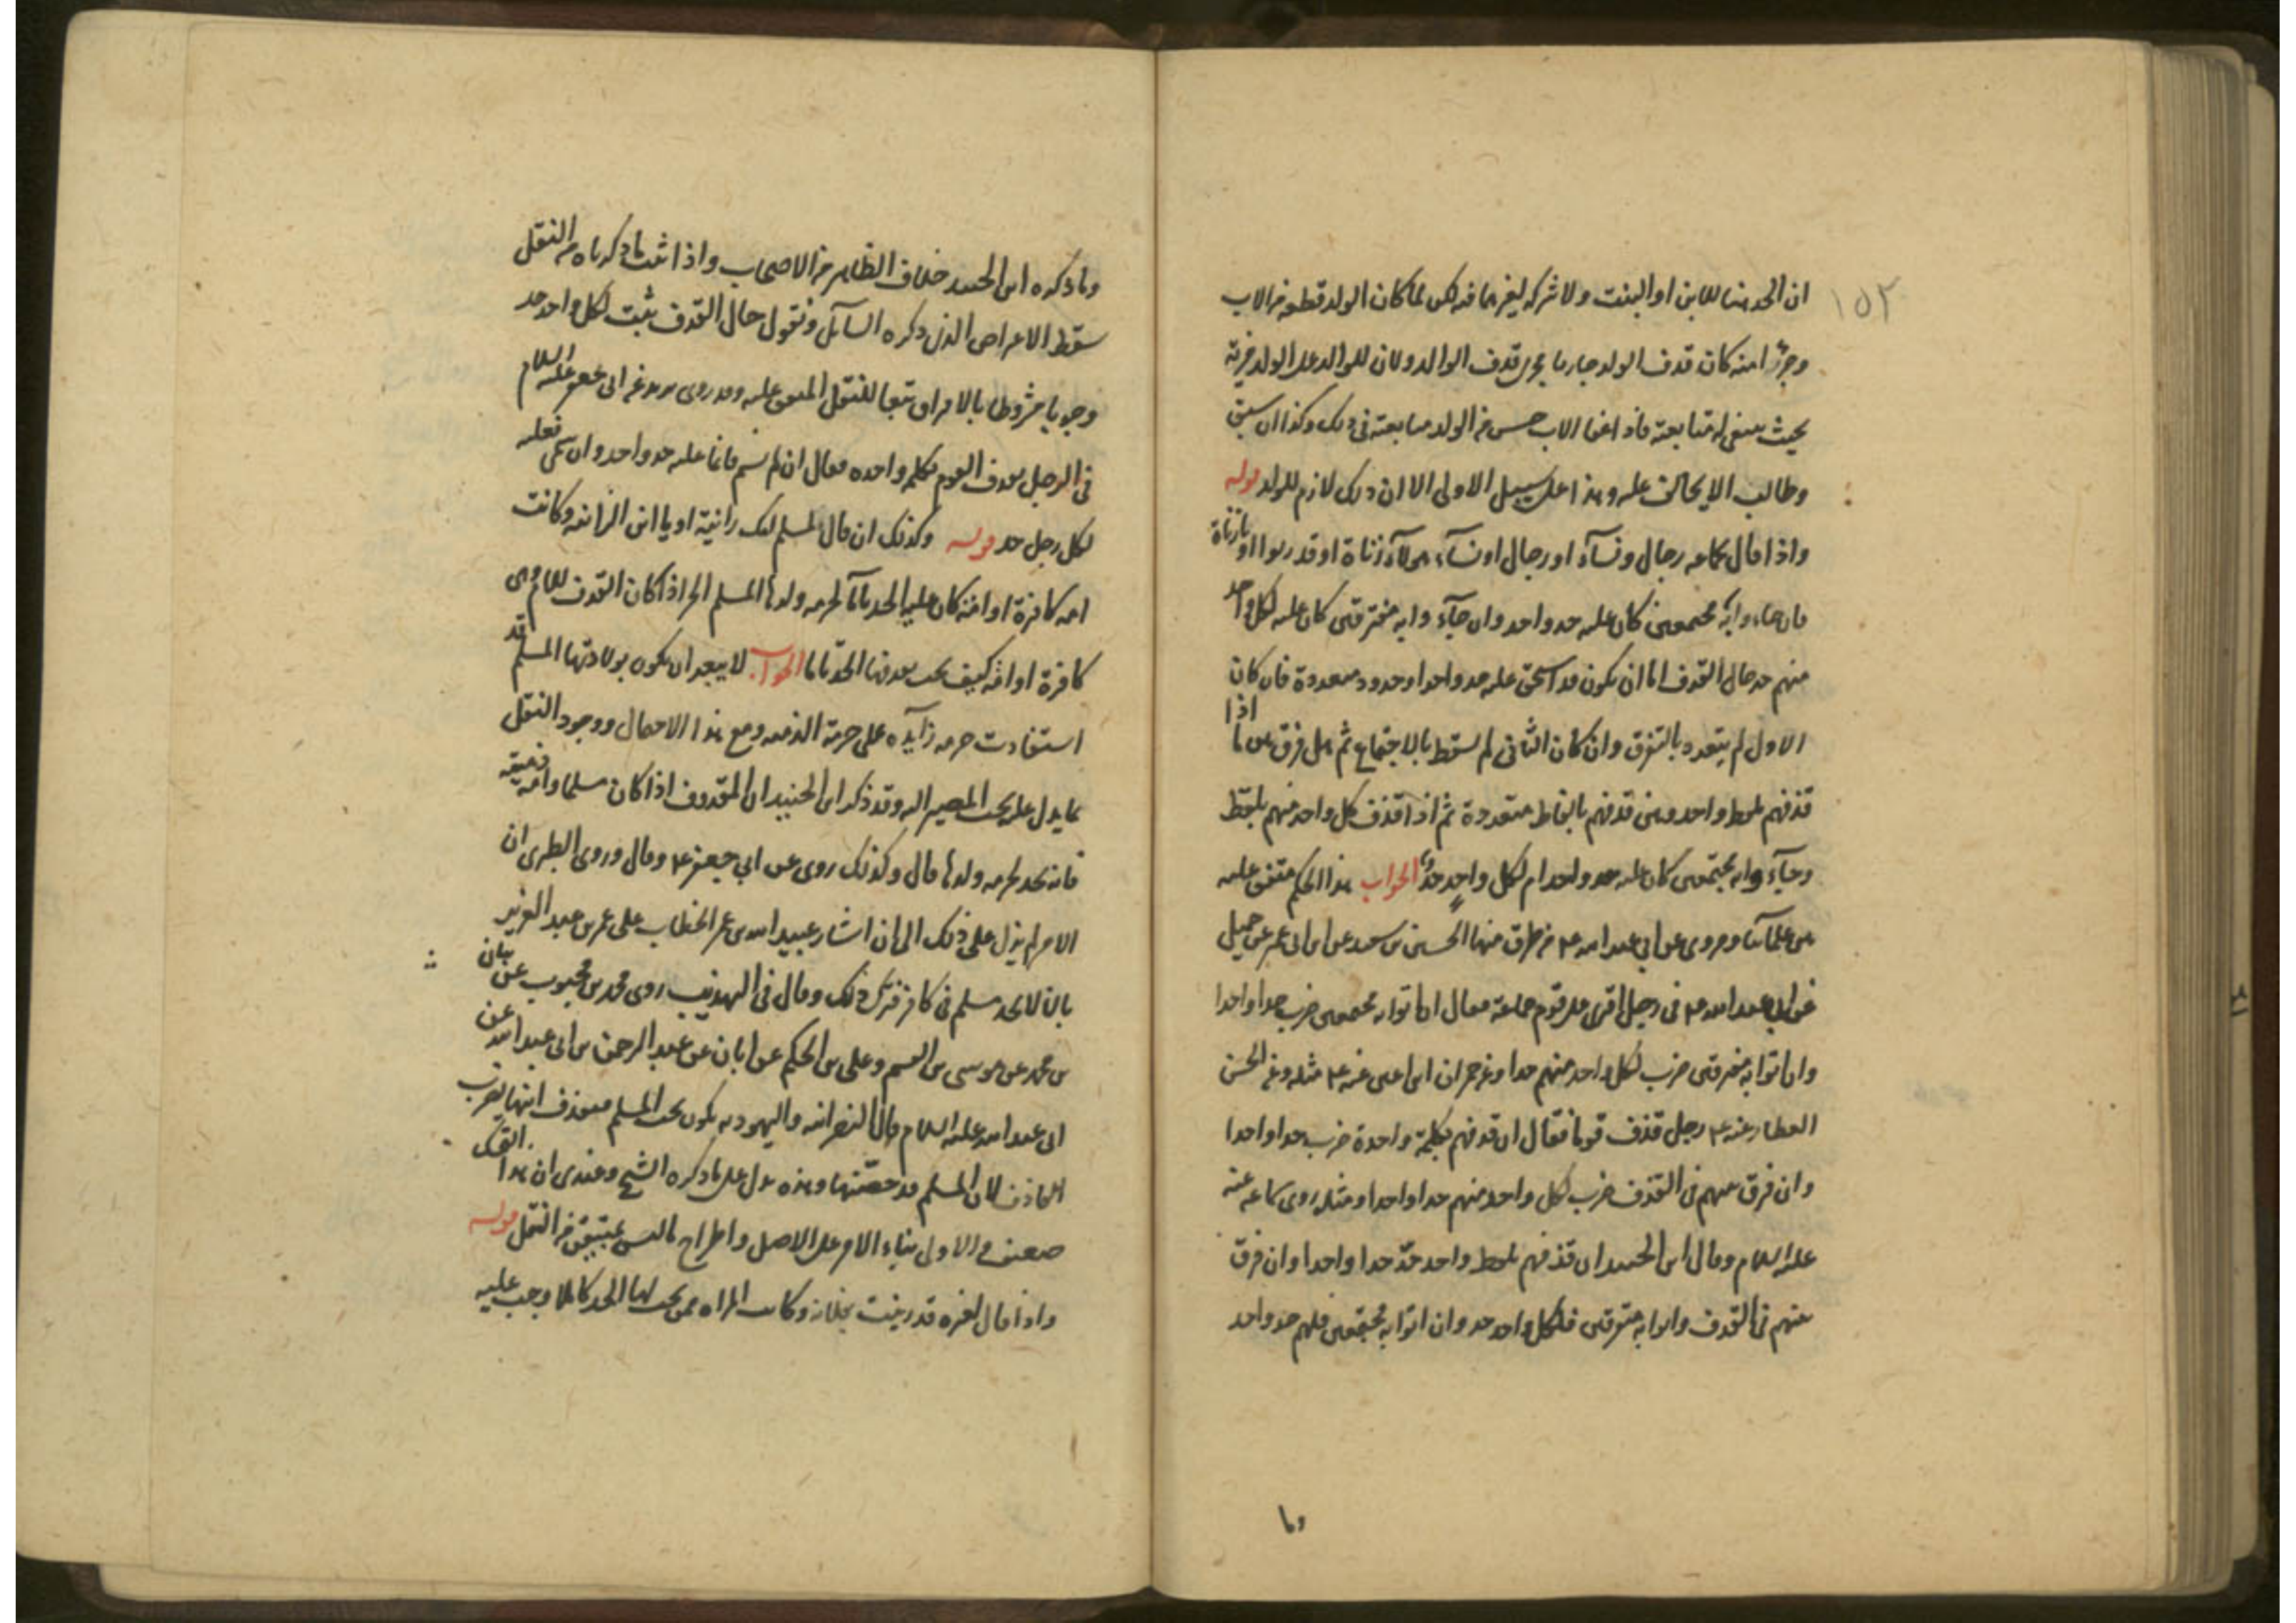 ١٥٢
ان الحد هنا للابن او البنت ولا شركه لغيرهما فيه لكن لما كان الولد قطعه من الاب
وجزء امنه كان قذف الولد جاريا مجرى قذف الوالد ولان للوالد على الولد مزية
بحيث ينبغى له متابعته فاذا عفا الاب حسن من الولد متابعته فى ذلك وكذا ان سبق
وطالب الا على وهذا على سبيل الاولى الا ان ذلك لازم للولد قوله
واذا قال لجماعه رجال ونسآء او رجال او نسآء هولآء زناة او قد زنوا او يا زناة
فان جاءوا به مجتمعين كان عليه حد واحد وان جآءوا به متفرقين كان عليه لكل واحد
منهم حد حال القذف اما ان يكون قد استحق عليه حد واحد او حدود متعددة فان كان
الاول لم يتعدد بالتفرق وان كان الثانى لم يسقط بالاجتماع ثم هل فرق بين ما اذا
قذفهم بلفظ واحد وبين قذفهم بالفاظ متعددة ثم اذا قذف كل واحد منهم بلفظ
وجآءوا به مجتمعين كان عليه حد واحد ام لكل واحد حد الجواب هذا الحكم متفق عليه
من علمآئنا ومروى عن ابي عبد الله ع من طرق منها الحسين بن سعيد عن ابن ابى عمير عن جميل
عن ابى عبد الله ع فى رجل افترى على قوم جماعة فقال ان اتوا به مجتمعين ضرب حدا واحدا
وان اتوا به متفرقين ضرب لكل واحد منهم حدا وعن حمران ابن اعين عنه ع مثله وعن الحسن
العطار عنه ع رجل قذف قوما فقال ان قذفهم بكلمة واحدة ضرب حدا واحدا
وان فرق بينهم فى القذف ضرب لكل واحد منهم حدا واحدا ومثله روى سماعه عنه
عليه السلام وقال ابن الجنيد ان قذفهم بلفظ واحد حدّ حدا واحدا وان فرق
بينهم فى القذف واتوا به متفرقين فلكل واحد حد وان اتوا به مجتمعين فلهم حد واحد
وما
وما ذكره ابن الجنيد خلاف الظاهر من الاصحاب واذا ثبت ما ذكرناه من النقل
سقط الاعراض الذى ذكره السآئل ونقول حال القذف يثبت لكل واحد حد
وجوبا مشروطا بالافراق تبعا للنقل المتفق عليه وقد روى بريد عن ابى جعفر عليه السلام
فى الرجل يقذف القوم بكلمه واحده فقال ان لم يسم فانما عليه حد واحد وان سمى فعليه
لكل رجل حد قوله وكذلك ان قال لمسلم امك زانية او يا ابن الزانيه وكانت
امه كافرة او امة كان عليه الحد تامّا لحرمه ولدها المسلم الحر اذا كان القذف للام وهى
كافرة او امة كيف يجب بقذفها الحدّ تاما الجواب لا يبعد ان يكون بولادتها المسلم قد
استفادت حرمه زآيده على حرمة الذميه ومع هذا الاحتمال ووجود النقل
بما يدل عليه يجب المصير اليه وقد ذكر ابن الجنيد ان المقذوف اذا كان مسلما وامه ذميه
فانه يحد لحرمه ولدها قال وكذلك روى عن ابي جعفر ع وقال وروى الطبرى ان
الامر لم يزل على ذلك الى ان اشار عبيد الله بن عمر الخطاب على عمر بن عبد العزيز
بان لا يحد مسلم فى كافر فترك ذلك وقال فى التهذيب روى محمد بن محبوب عن بنان
بن محمد عن موسى بن القسم وعلى بن الحكم عن ابان عن عبد الرحمن بن ابى عبد الله عن
ابى عبد الله عليه السلام قال النصرانيه واليهوديه يكون تحت المسلم فيقذف ابنها يضرب
القاذف لان المسلم قد حصّنها وهذه يدل على ما ذكره الشيخ وعندى ان هذا القول
ضعيف والاولى بناء الامر على الاصل واطراح ما ليس بمتيقن من النقل قوله
واذا قال لغيره قد زنيت بفلانه وكانت المراه ممن يجب لها الحد كاملا وجب عليه